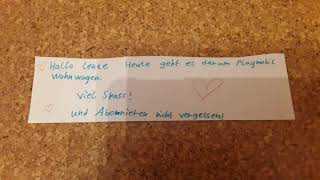 Hallo leute Heute geht es darum Playmobil
Wohnwagen.
Viel Spass!
und Abonnieren nicht vergessen!